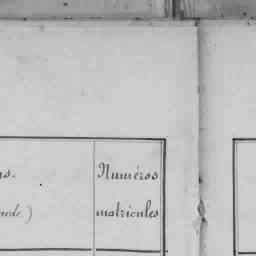 Numéros
matricules